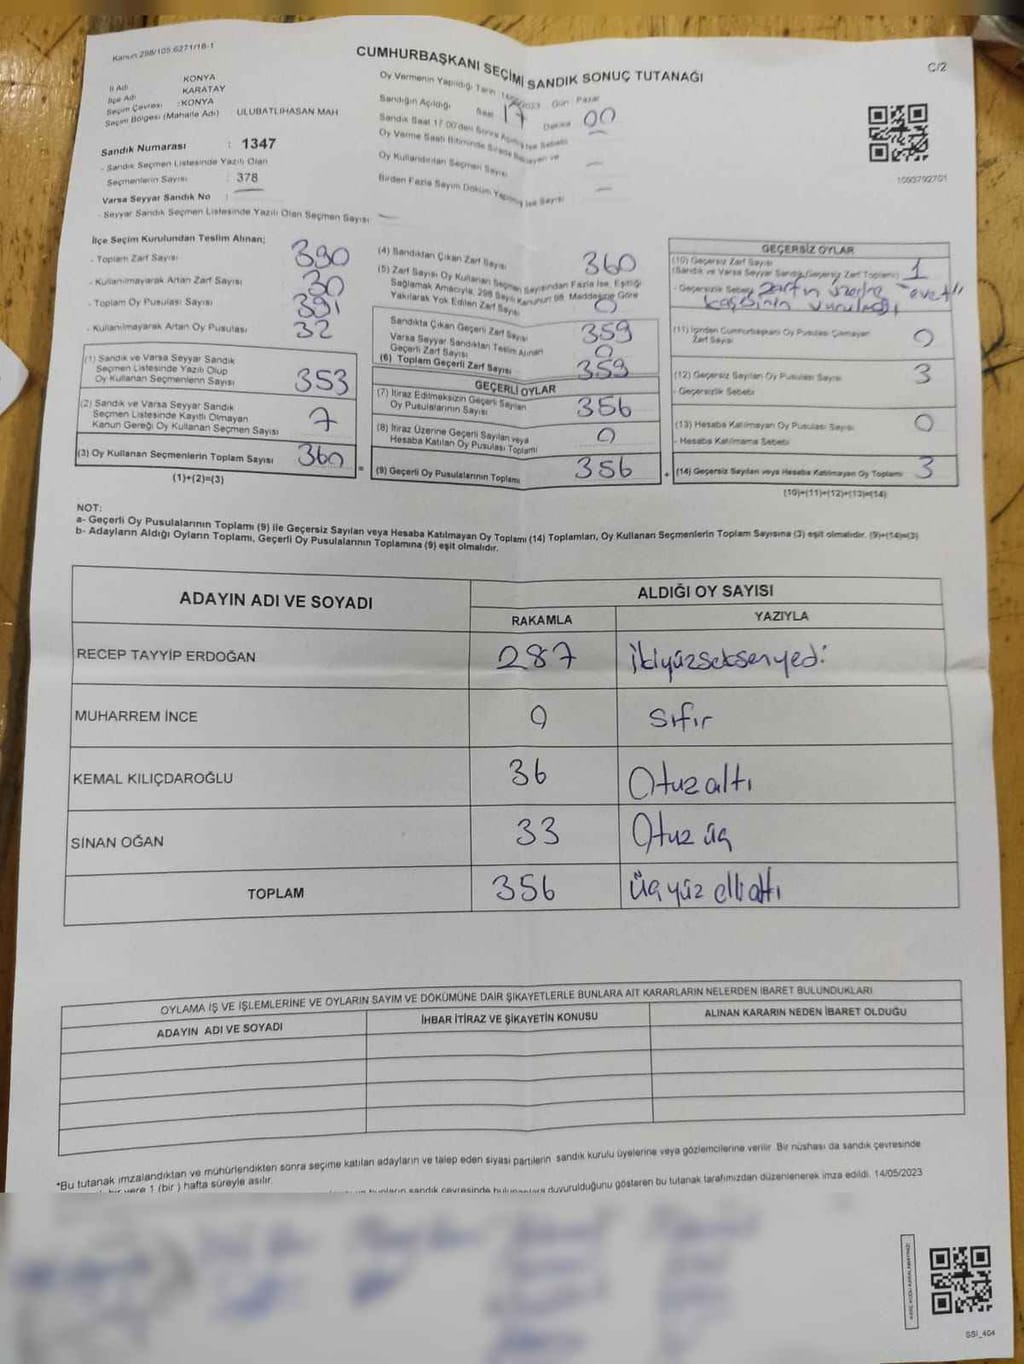 Kanun 298/105 6271/18-1
CUMHURBAŞKANI SEÇİMİ SANDIK SONUÇ TUTANAĞI
C/2
İl Adı KONYA
İlçe Adı KARATAY
Seçim Çevresi : KONYA
Seçim Bölgesi (Mahalle Adı) ULUBATLIHASAN MAH
Sandık Numarası : 1347
- Sandık Seçmen Listesinde Yazılı Olan
Seçmenlerin Sayısı : 378
Varsa Seyyar Sandık No :
- Seyyar Sandık Seçmen Listesinde Yazılı Olan Seçmen Sayısı
Oy Vermenin Yapıldığı Tarih 2023 Gün Pazar
Sandığın Açıldığı Saat 17 Dakika 00
Sandık Saat 17.00'den Sonra Açılmış İse Sebebi
Oy Verme Saati Bitiminde Sırada Bekleyen ve
Oy Kullandırılan Seçmen Sayısı
Birden Fazla Sayım Döküm Yapılmış İse Sayısı
1093792701
İlçe Seçim Kurulundan Teslim Alınan;
- Toplam Zarf Sayısı 390
- Kullanılmayarak Artan Zarf Sayısı 30
- Toplam Oy Pusulası Sayısı 391
- Kullanılmayarak Artan Oy Pusulası 32
(1) Sandık ve Varsa Seyyar Sandık
Seçmen Listesinde Yazılı Olup
Oy Kullanan Seçmenlerin Sayısı 353
(2) Sandık ve Varsa Seyyar Sandık
Seçmen Listesinde Kayıtlı Olmayan
Kanun Gereği Oy Kullanan Seçmen Sayısı 7
(3) Oy Kullanan Seçmenlerin Toplam Sayısı 360
(1)+(2)=(3)
(4) Sandıktan Çıkan Zarf Sayısı 360
(5) Zarf Sayısı Oy Kullanan Seçmen Sayısından Fazla İse, Eşitliği
Sağlamak Amacıyla, 298 Sayılı Kanunun 98. Maddesine Göre
Yakılarak Yok Edilen Zarf Sayısı 0
Sandıkta Çıkan Geçerli Zarf Sayısı 359
Varsa Seyyar Sandıktan Teslim Alınan
Geçerli Zarf Sayısı 0
(6) Toplam Geçerli Zarf Sayısı 359
GEÇERLİ OYLAR
(7) İtiraz Edilmeksizin Geçerli Sayılan
Oy Pusulalarının Sayısı 356
(8) İtiraz Üzerine Geçerli Sayılan veya
Hesaba Katılan Oy Pusulası Toplamı 0
(9) Geçerli Oy Pusulalarının Toplamı 356
GEÇERSİZ OYLAR
(10) Geçersiz Zarf Sayısı
(Sandık ve Varsa Seyyar Sandık Geçersiz Zarf Toplamı) 1
- Geçersizlik Sebebi zarfın üzerine "evet"
kaşesinin vurulması
(11) İçinden Cumhurbaşkanı Oy Pusulası Çıkmayan
Zarf Sayısı 0
(12) Geçersiz Sayılan Oy Pusulası Sayısı 3
- Geçersizlik Sebebi
(13) Hesaba Katılmayan Oy Pusulası Sayısı 0
- Hesaba Katılmama Sebebi
(14) Geçersiz Sayılan veya Hesaba Katılmayan Oy Toplamı 3
(10)+(11)+(12)+(13)=(14)
NOT:
a- Geçerli Oy Pusulalarının Toplamı (9) ile Geçersiz Sayılan veya Hesaba Katılmayan Oy Toplamı (14) Toplamları, Oy Kullanan Seçmenlerin Toplam Sayısına (3) eşit olmalıdır. (9)+(14)=(3)
b- Adayların Aldığı Oyların Toplamı, Geçerli Oy Pusulalarının Toplamına (9) eşit olmalıdır.
ADAYIN ADI VE SOYADI
ALDIĞI OY SAYISI
RAKAMLA YAZIYLA
RECEP TAYYİP ERDOĞAN 287 ikiyüzseksenyedi
MUHARREM İNCE 0 sıfır
KEMAL KILIÇDAROĞLU 36 Otuz altı
SİNAN OĞAN 33 Otuz üç
TOPLAM 356 Üç yüz elli altı
OYLAMA İŞ VE İŞLEMLERİNE VE OYLARIN SAYIM VE DÖKÜMÜNE DAİR ŞİKAYETLERLE BUNLARA AİT KARARLARIN NELERDEN İBARET BULUNDUKLARI
ADAYIN ADI VE SOYADI İHBAR İTİRAZ VE ŞİKAYETİN KONUSU ALINAN KARARIN NEDEN İBARET OLDUĞU
*Bu tutanak imzalandıktan ve mühürlendikten sonra seçime katılan adayların ve talep eden siyasi partilerin sandık kurulu üyelerine veya gözlemcilerine verilir. Bir nüshası da sandık çevresinde
bir yere 1 (bir) hafta süreyle asılır.
sandık çevresinde bulunanlara duyurulduğunu gösteren bu tutanak tarafımızdan düzenlenerek imza edildi. 14/05/2023
SSI_404